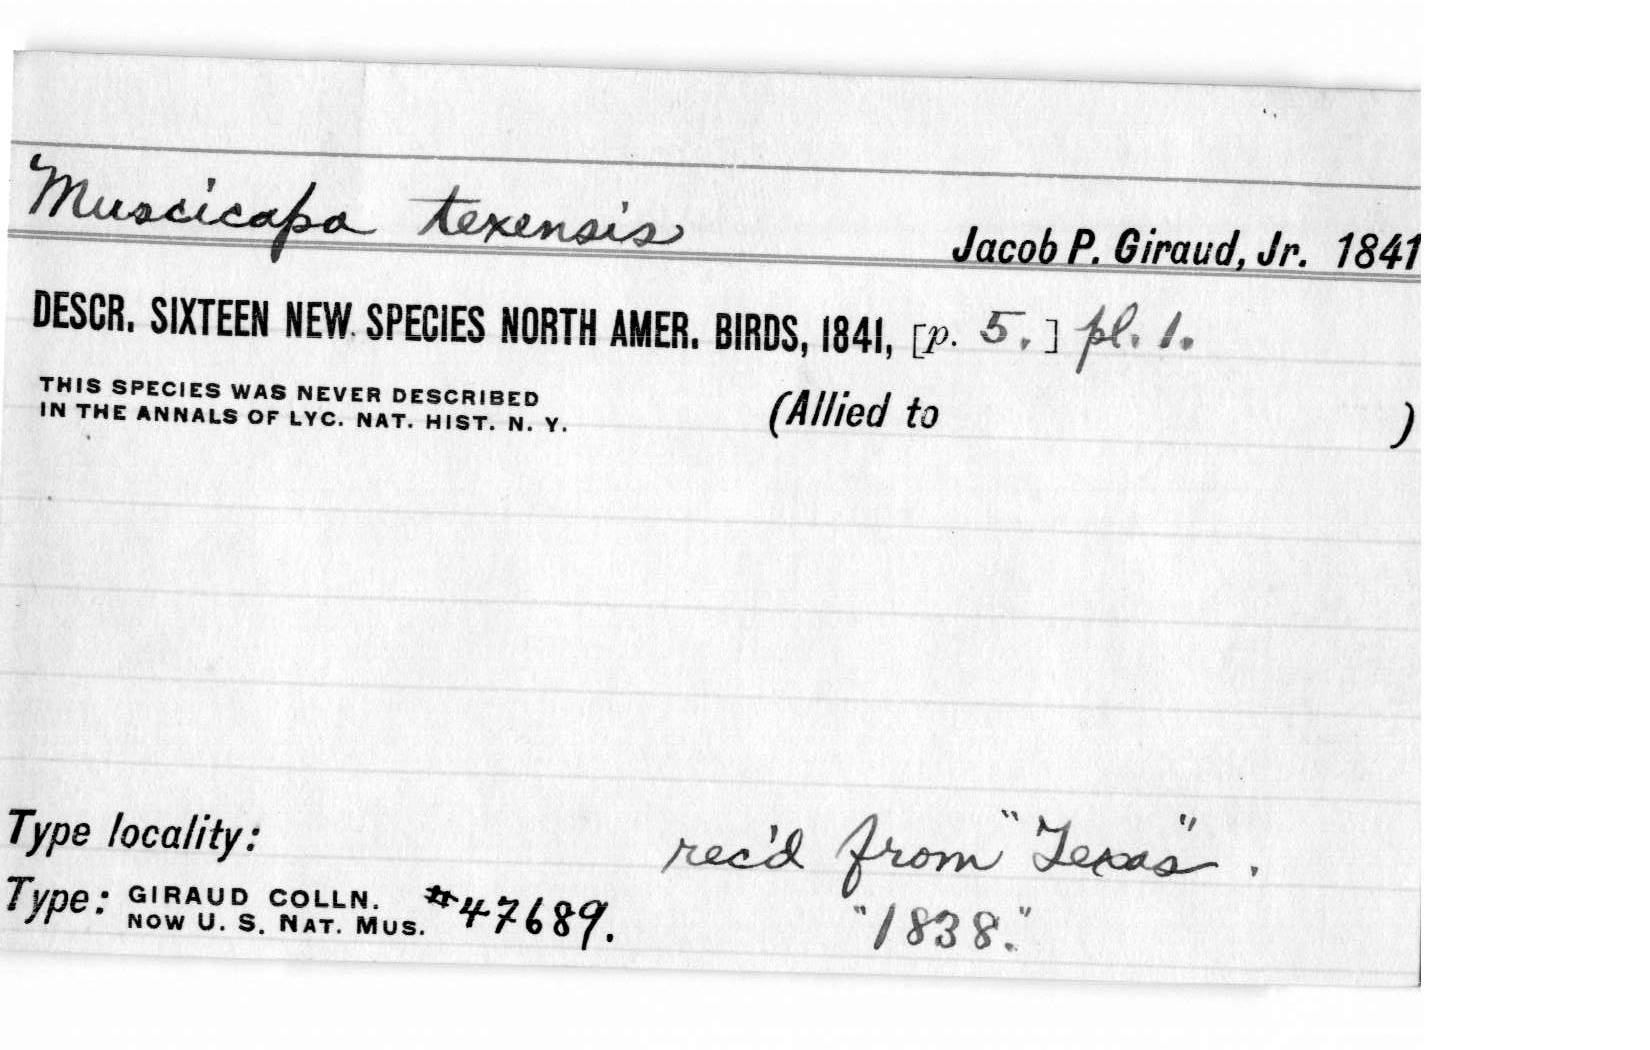 Muscicapa texensis Jacob P. Giraud, Jr. 1841
DESCR. SIXTEEN NEW. SPECIES NORTH AMER. BIRDS, 1841, [p. 5.] pl. 1.
THIS SPECIES WAS NEVER DESCRIBED
IN THE ANNALS OF LYC. NAT. HIST. N. Y.
(Allied to )
Type locality: rec'd from "Texas".
Type: GIRAUD COLLN.
NOW U. S. NAT. MUS. #47689. "1838."